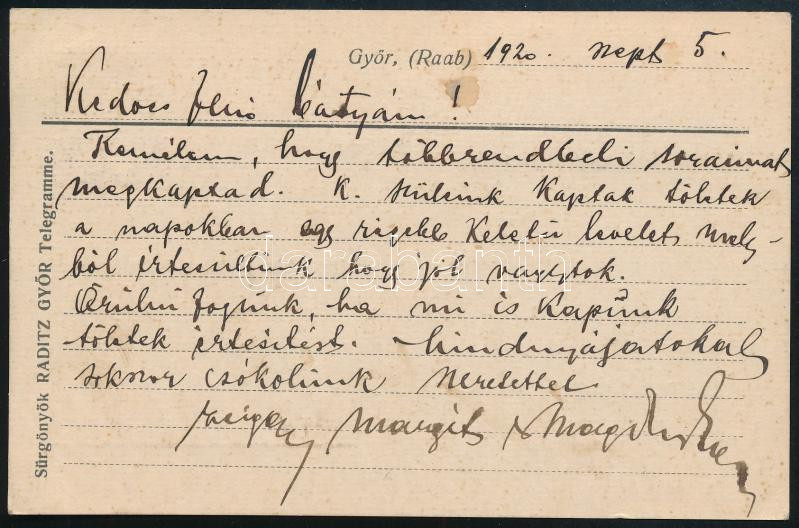 Győr, (Raab) 1920. sept 5.
Kedves Jenő Bátyám!
Remélem, hogy többrendbeli soraimat
megkaptad. K. szüleink kaptak tőletek
a napokban egy régebb keletű levelet, mely-
ből értesültünk hogy jól vagytok.
Örülni fogunk, ha mi is kapunk
tőletek értesítést. Mindnyájatokat
sokszor csókolunk szeretettel
Margit
Sürgönyök RADITZ GYŐR Telegramme.
darabanth